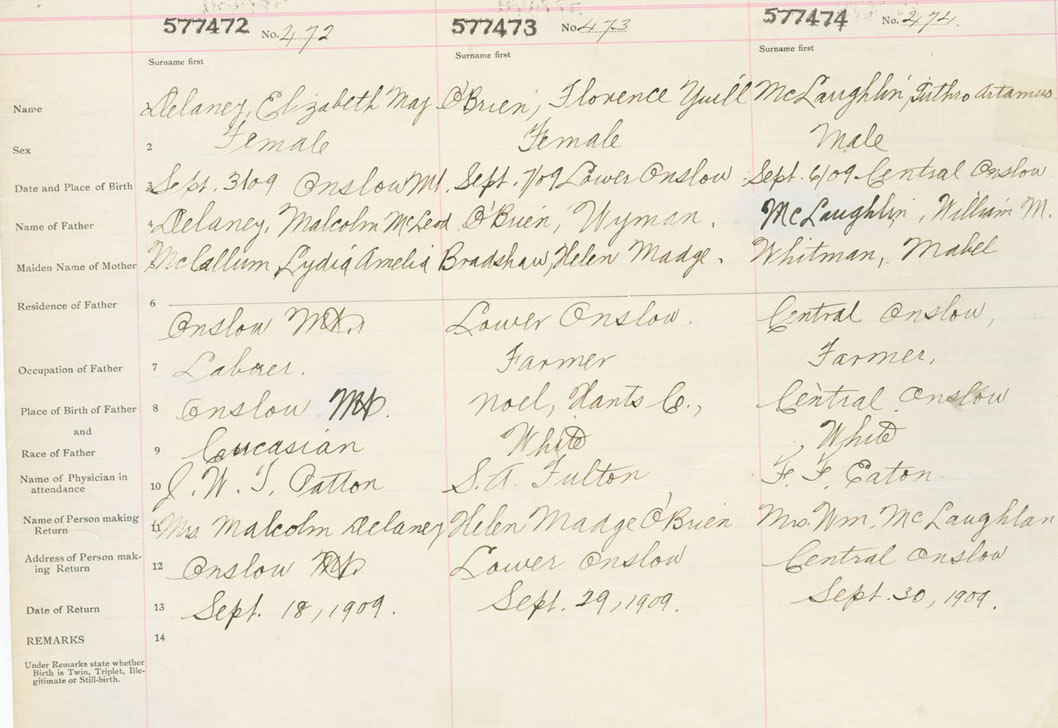 577472 No. 472 577473 No. 473 577474 No. 474.
Surname first Surname first Surname first
Name Delaney, Elizabeth May O'Brien, Florence Yuill McLaughlin, Artamus
Sex 2 Female Female Male
Date and Place of Birth 3 Sept. 3/09 Onslow Mt. Sept. 7/09 Lower Onslow Sept. 6/09 Central Onslow
Name of Father 4 Delaney, Malcolm McLeod O'Brien, Wyman. McLaughlin, William M.
Maiden Name of Mother McCallum, Lydia Amelia Bradshaw, Helen Madge. Whitman, Mabel
Residence of Father 6 Onslow Mt. Lower Onslow. Central Onslow,
Occupation of Father 7 Laborer. Farmer Farmer.
Place of Birth of Father 8 Onslow Mt. Noel, Hants C., Central Onslow
and
Race of Father 9 Caucasian White White
Name of Physician in
attendance 10 J. W. T. Patton S. A. Fulton F. F. Eaton.
Name of Person making
Return 11 Mrs Malcolm Delaney Helen Madge O'Brien Mrs Wm. McLaughlan
Address of Person mak-
ing Return 12 Onslow Mt. Lower Onslow Central Onslow
Date of Return 13 Sept. 18, 1909. Sept. 29, 1909. Sept. 30, 1909.
REMARKS 14
Under Remarks state whether
Birth is Twin, Triplet, Ille-
gitimate or Still-birth.